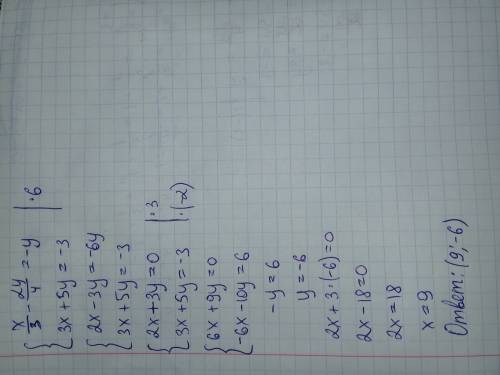 { x/3 - 2y/4 = -y | ·6
3x + 5y = -3
{ 2x - 3y = -6y
3x + 5y = -3
{ 2x + 3y = 0 | ·3
3x + 5y = -3 | ·(-2)
{ 6x + 9y = 0
-6x - 10y = 6
-y = 6
y = -6
2x + 3·(-6) = 0
2x - 18 = 0
2x = 18
x = 9
Ответ: (9; -6)